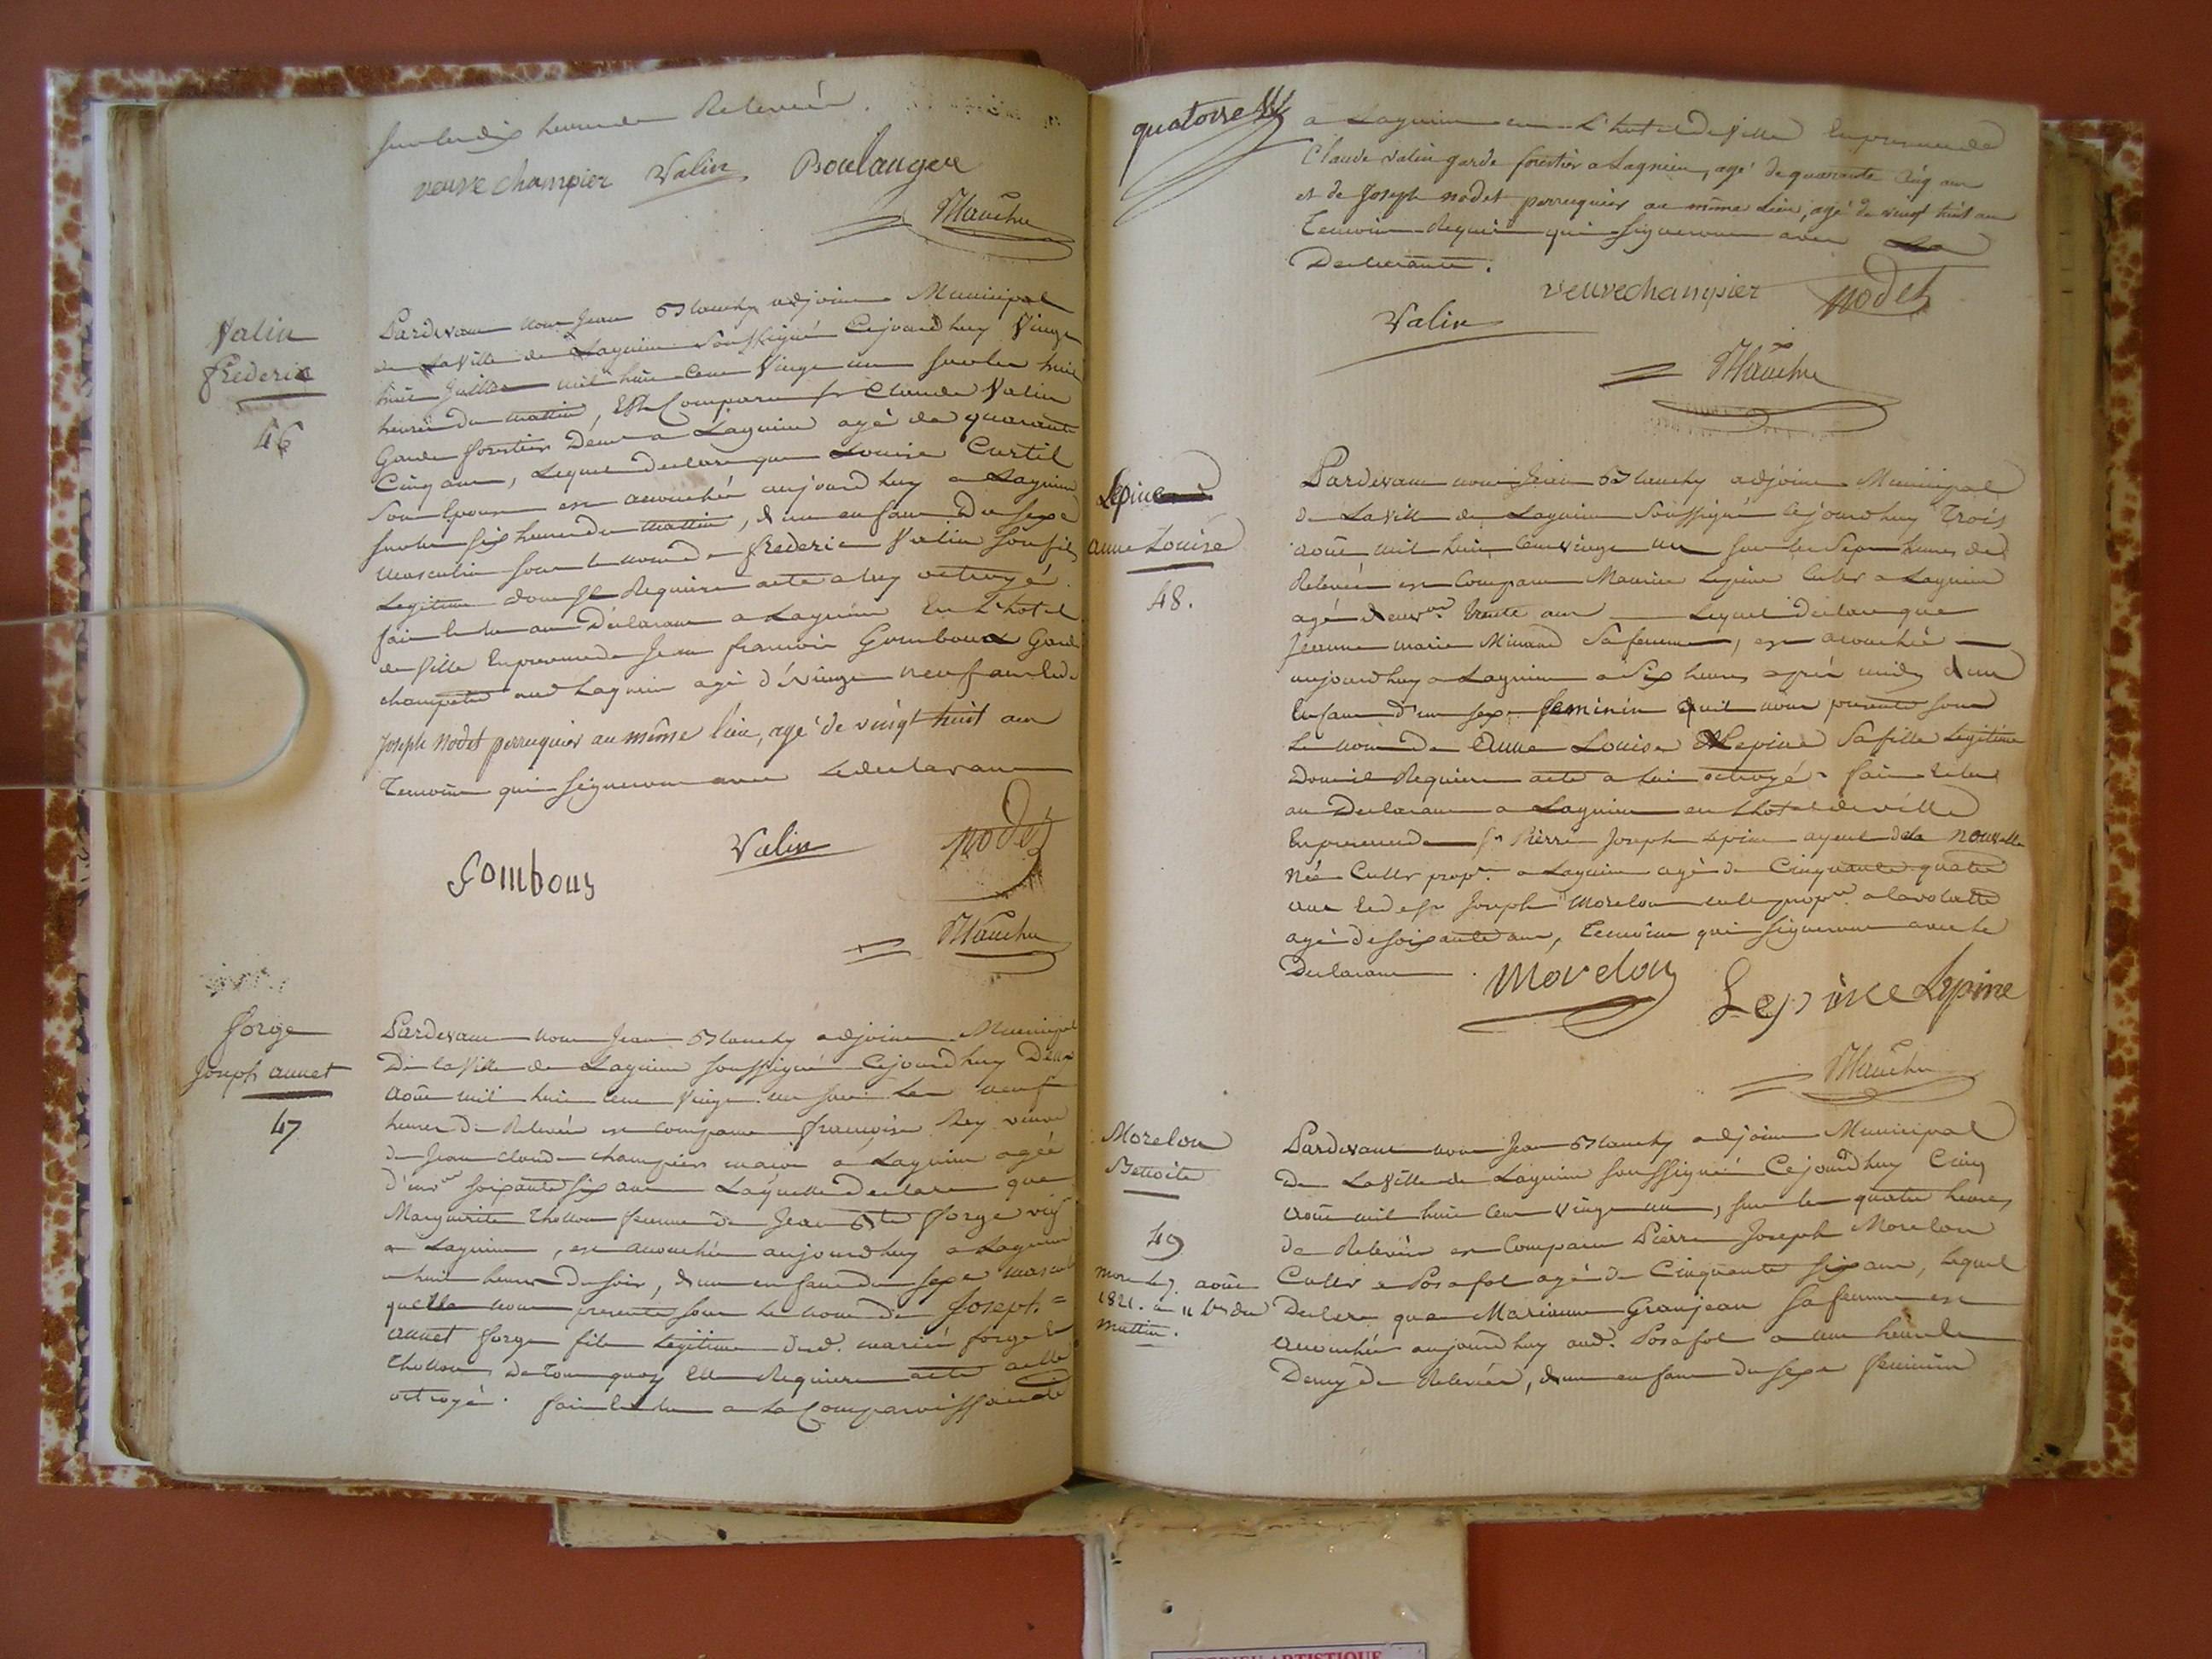 sur les dix heures de Relevée.
veuve champier Valin Boulanger
Valin
frederic
46
Pardevant nous Jean Bte adjoint Municipal
de La Ville de Lagnieu soussigné Cejourd'huy Vingt
huit Juillet mil huit Cent Vingt un sur les huit
heures du mattin, Est Comparu sr Claude Valin
Garde forestier Démt a Lagnieu agé de quarante
Cinq ans, Lequel declare que Louise Curtil
Son Epouse est accouchée aujourd huy a Lagnieu
sur les six heures du mattin, d'un enfant Du sexe
Masculin sous le nom de frederic Valin son fils
Legitime dont Il Requiere acte a luy octroyé.
fait lu au Déclarant a Lagnieu En L'hotel
de Ville En presence de Jean francois Gomboux Garde
champetre aud Lagnieu agé d'Évingt neuf ans Et de
Joseph Nodet perruquier au même lieu, agé de vingt huit ans
Temoins qui signeront avec Le declarant
Gombous Valin Nodet
forge
Joseph annet
47
Pardevant nous Jean Bte adjoint Municipal
De la Ville de Lagnieu soussigné Cejourd huy Deux
Août mil huit Cent Vingt un sur Les neuf
heures de Relevée est comparue francoise Rey veuve
de Jean claude champier a Lagnieu agée
d'envon soixante six ans Laquelle Declare que
Marguerite Thollon femme de Jean Bte forge
a Lagnieu, est accouchée aujourd huy a Lagnieu
a huit heures Du soir, d'un enfant du sexe mascul
quelle nous presente sous Le nom de Joseph=
annet forge fils Legitime desd. mariés forge et
Thollon De Tout quoy Elle Requiere acte a elle
octroyé. fait lu a La Comparoissante
quatorze
a Lagnieu en L'hotel de Ville En presence de
Claude Valin garde forestier a Lagnieu, agé de quarante Cinq ans
et de Joseph nodet perruquier au même Lieu, agé de vingt huit ans
Temoins Requis qui signeront avec La
Declarante.
Valin veuve champier nodet
Lepine
anne Louise
48.
Pardevant nous Jean Bte adjoint Municipal
de La Ville de Lagnieu soussigné Cejourd huy Trois
Août mil huit Cent vingt un sur les Sept heures de
Relevée est Comparu Maurice Lepine Cultr a Lagnieu
agé denvon trente ans Lequel declare que
Jeanne marie Minand Sa femme, est accouchée
aujourd huy a Lagnieu a Six heures aprés midy d'un
Enfant d'un sexe feminin quil nous presente sous
Le nom de Anne Louise Lepine Sa fille Legitime
Dont il Requiere acte a lui octroyé. fait lu
au Declarant a Lagnieu en L'hotel de ville
En presence de sr Pierre Joseph Lepine ayeul de la nouvelle
née Cultr propre a Lagnieu agé de Cinquante quatre
ans Et de sr Joseph Morelon cult propre
agé de soixante ans, Temoins qui signeront avec Le
Declarant.
Morelon Lepine Lepine
Morelon
Benoite
49
mort Le 7. août
1821. a 11 hres du
mattin.
Pardevant nous Jean Bte adjoint Municipal
De La Ville de Lagnieu soussigné Cejourd huy Cinq
Août mil huit Cent Vingt un, sur les quatre heures
de Relevée est Comparu Pierre Joseph Morelon
Cultr a Posafol agé de Cinquante six ans, lequel
Declare que Marianne Granjean sa femme est
accouchée aujourd huy aud. Posafol a une heure Et
Demy de Relevée, d'un enfant du sexe feminin